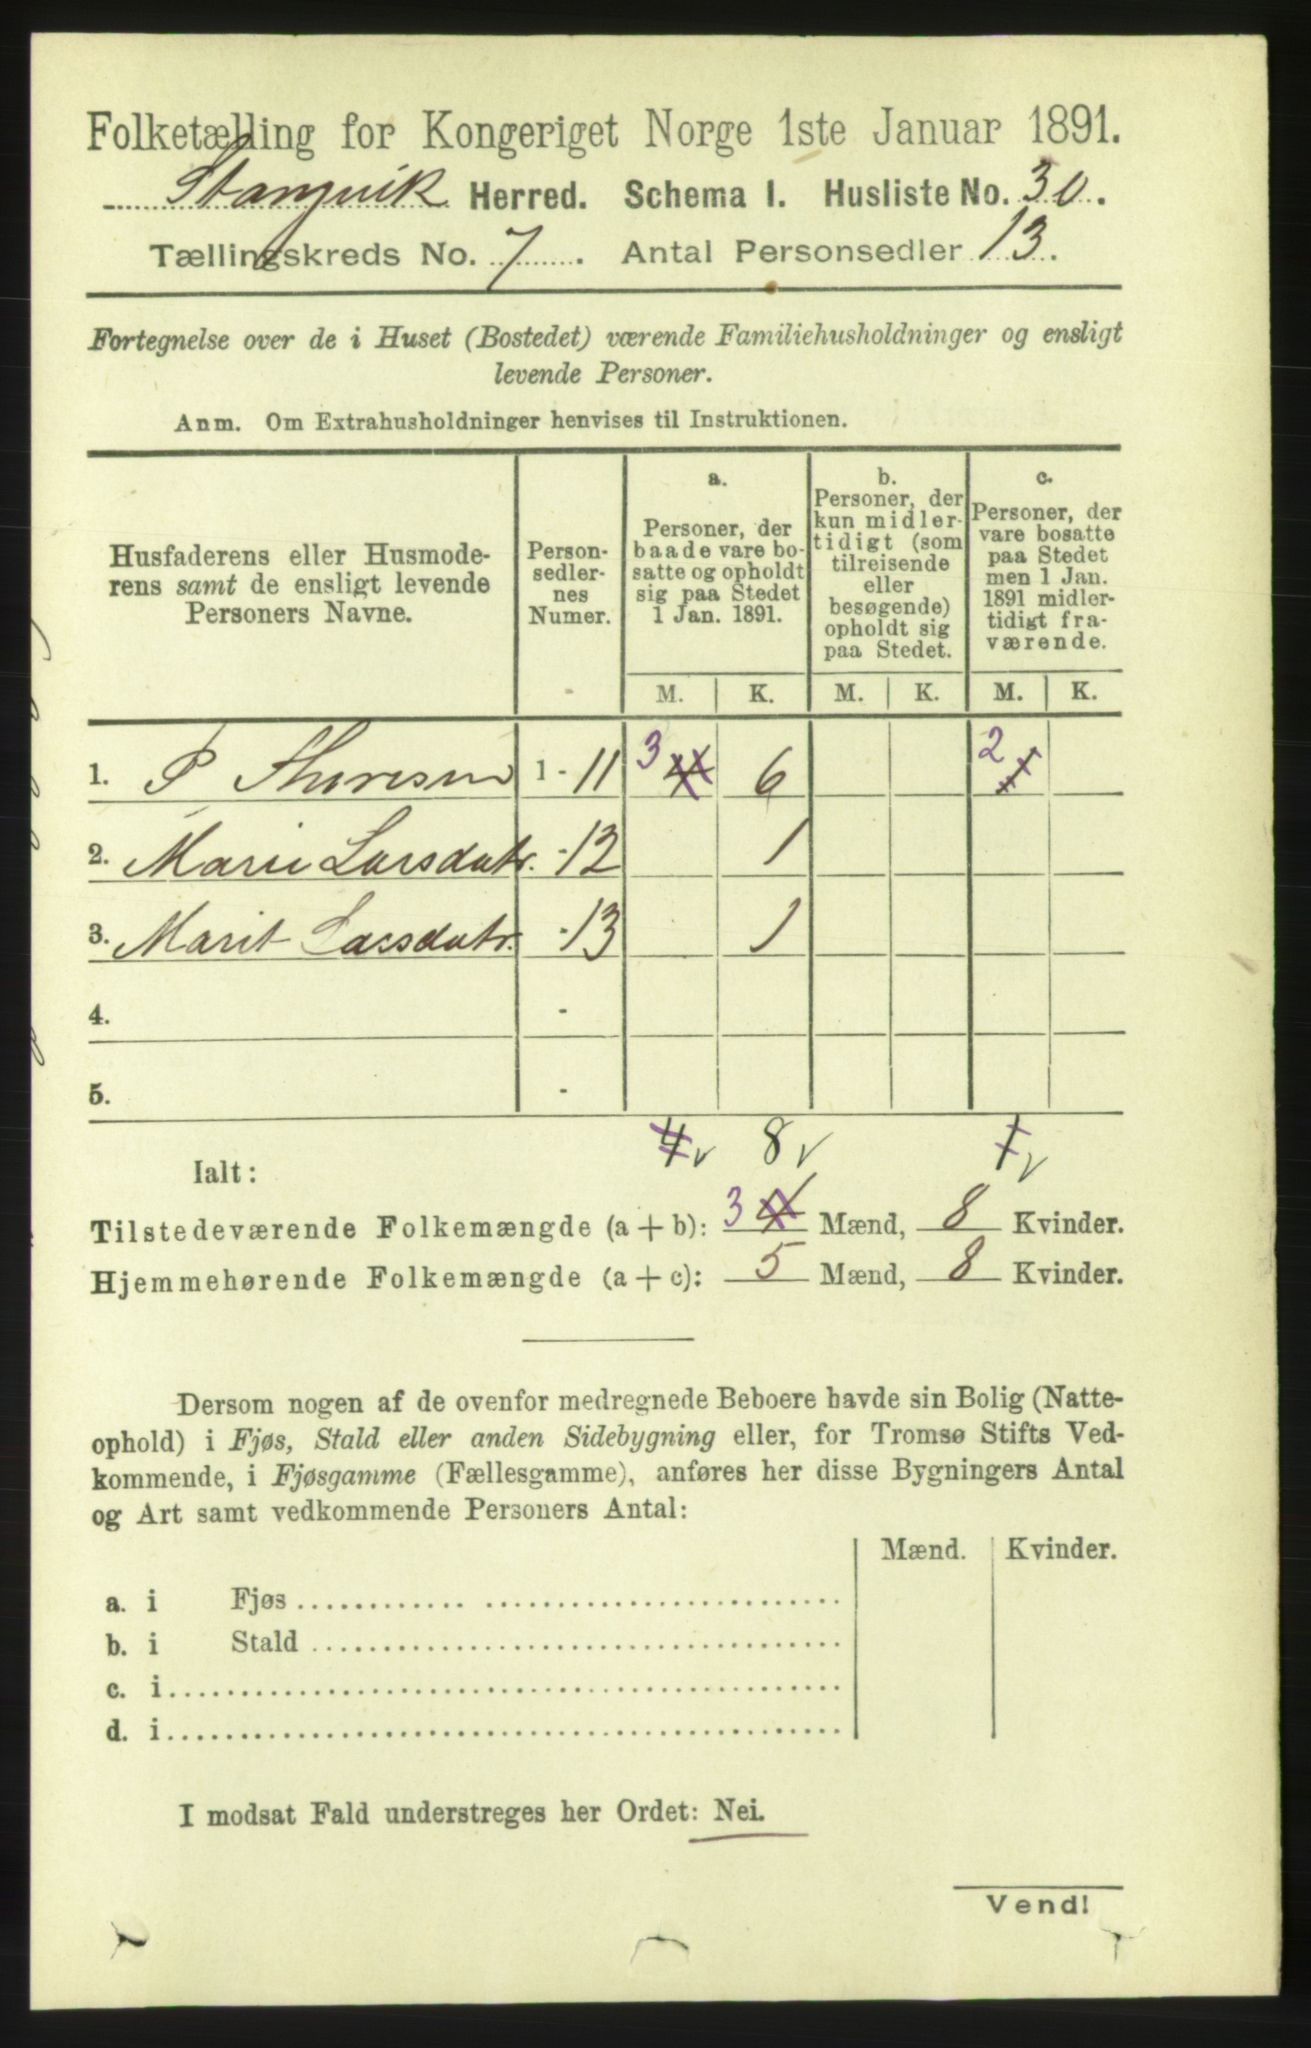 Folketælling for Kongeriget Norge 1ste Januar 1891.
Stangvik Herred. Schema I. Husliste No. 30.
Tællingskreds No. 7. Antal Personsedler 13.
Fortegnelse over de i Huset (Bostedet) værende Familiehusholdninger og ensligt
levende Personer.
Anm. Om Extrahusholdninger henvises til Instruktionen.
Husfaderens eller Husmode-
rens samt de ensligt levende
Personers Navne.
Person-
sedler-
nes
Numer.
a.
Personer, der
baade vare bo-
satte og opholdt
sig paa Stedet
1 Jan. 1891.
b.
Personer, der
kun midler-
tidigt (som
tilreisende
eller
besøgende)
opholdt sig
paa Stedet.
c.
Personer, der
vare bosatte
paa Stedet
men 1 Jan.
1891 midler-
tidigt fra-
værende.
M. K. M. K. M. K.
1. P 1 - 11 3 4 6 2 1
2. Marie Larsdatr. - 12 1
3. Marit Larsdatr. - 13 1
4. -
5. -
4 8 1
Ialt:
Tilstedeværende Folkemængde (a + b): 3 4 Mænd, 8 Kvinder.
Hjemmehørende Folkemængde (a + c): 5 Mænd, 8 Kvinder.
Dersom nogen af de ovenfor medregnede Beboere havde sin Bolig (Natte-
ophold) i Fjøs, Stald eller anden Sidebygning eller, for Tromsø Stifts Ved-
kommende, i Fjøsgamme (Fællesgamme), anføres her disse Bygningers Antal
og Art samt vedkommende Personers Antal:
Mænd. Kvinder.
a. i Fjøs
b. i Stald
c. i
d. i
I modsat Fald understreges her Ordet: Nei.
Vend!